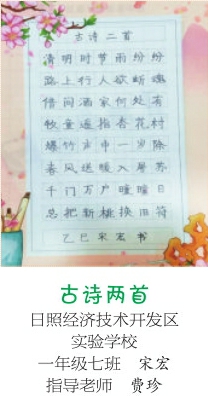 古诗二首
清明时节雨纷纷
路上行人欲断魂
借问酒家何处有
牧童遥指杏花村
爆竹声中一岁除
春风送暖入屠苏
千门万户曈曈日
总把新桃换旧符
乙巳宋宏书
古诗两首
日照经济技术开发区
实验学校
一年级七班 宋宏
指导老师 费珍